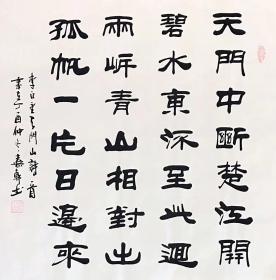 天門中斷楚江開
碧水東流至此迴
兩岸青山相對出
孤帆一片日邊來
李白望天門山詩一首